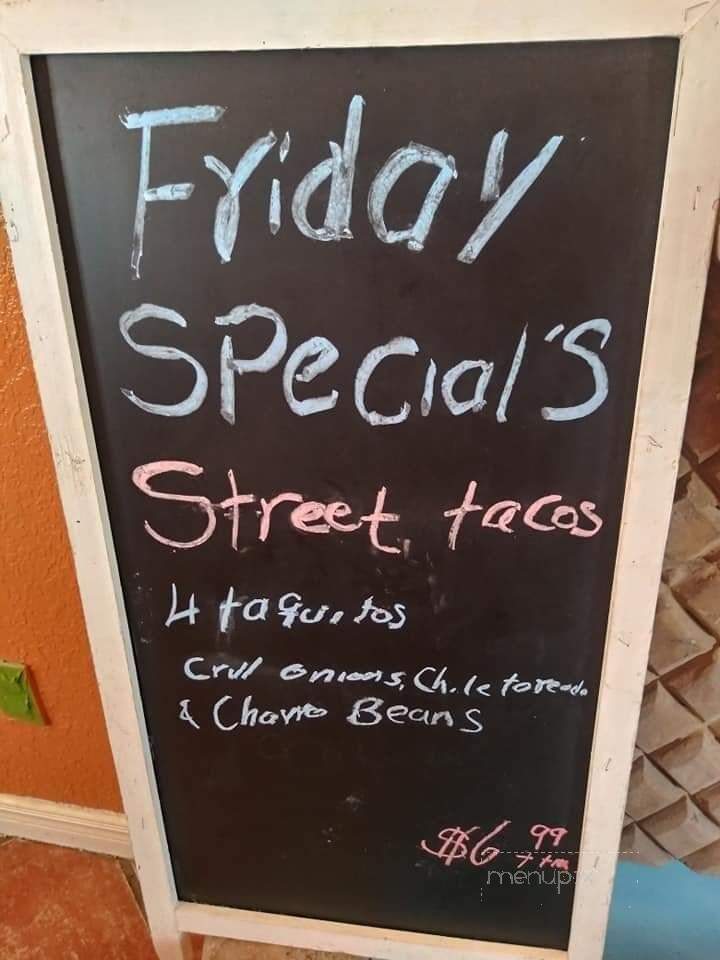 Friday
Special's
Street tacos
4 taquitos
Grill onions, Chile toreado
& Charro Beans
$6 99
+ tax
menupix